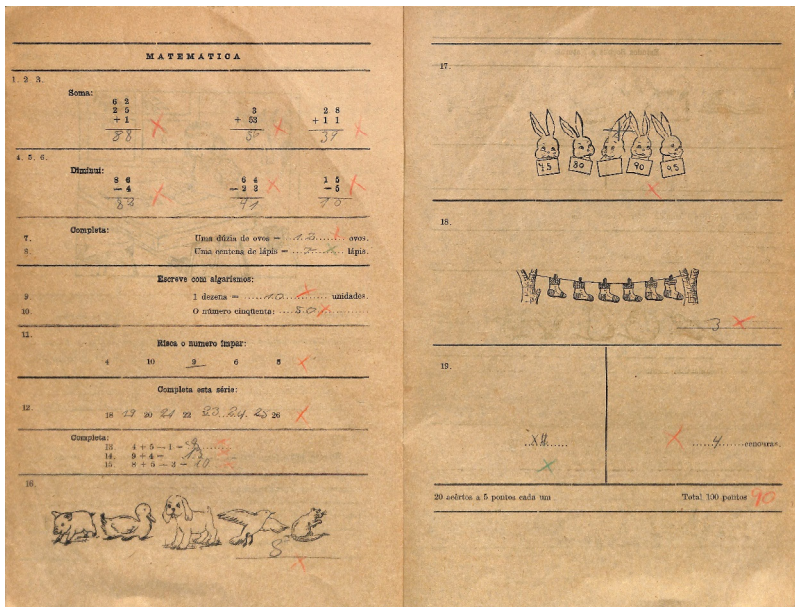 MATEMATICA
1. 2 3.
Soma:
6 2
2 5
+ 1
88
3
+ 53
56
2 8
+ 1 1
39
4. 5. 6.
Diminui:
8 6
— 4
82
6 4
— 2 3
41
1 5
— 5
10
Completa:
7. Uma dúzia de ovos = 12 ovos.
8 Uma centena de lápis = lápis.
Escreve com algarismos:
9. 1 dezena = 10 unidades.
10. O número cinqüenta: 50
11.
Risca o numero ímpar:
4 10 9 6 8
Completa esta série:
12. 18 19 20 21 22 23 24 25 26
Completa:
13. 4 + 5 — 1 =
14. 9 + 4 = 13
15. 8 + 5 — 3 = 10
16.
5
17.
45 80 90 95
18.
3
19.
4
4 cenouras.
20 acêrtos a 5 pontos cada um Total 100 pontos 90